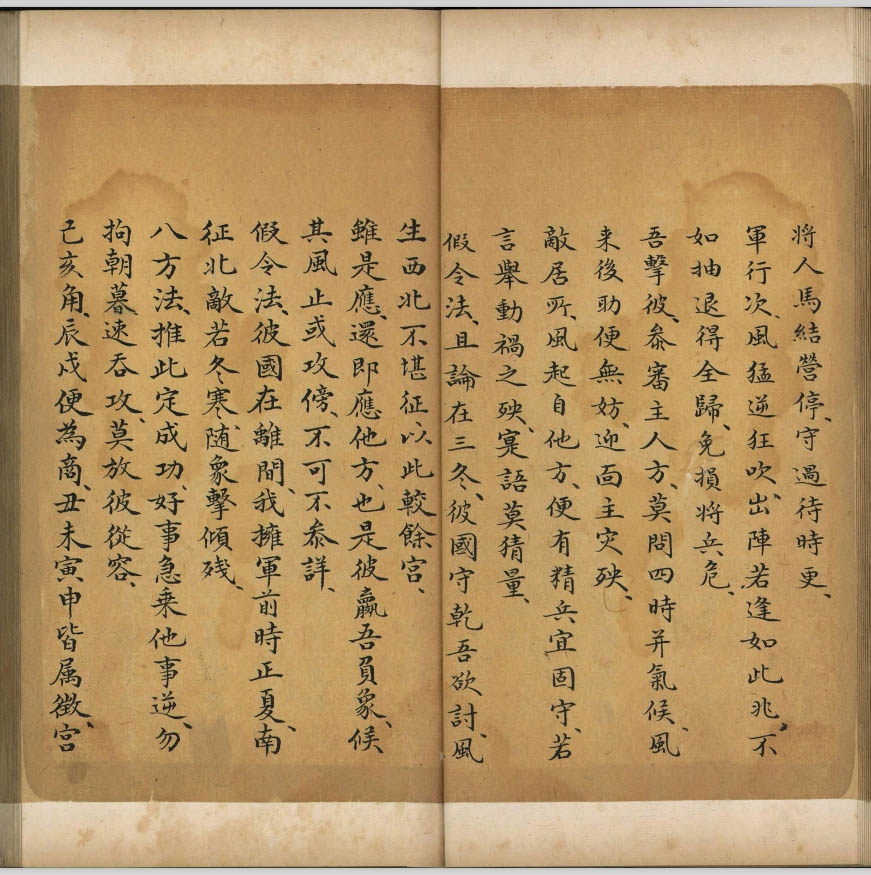 将人馬結營停、守過待時更、
軍行次、風猛逆狂吹、出陣若逢如此兆、不
如抽退得全歸、免損將兵危、
吾擊彼、叅審主人方、莫問四時并氣候、風
来後助便無妨、迎面主灾殃、
敵居𠩄、風起自他方、便有精兵宜固守、若
言舉動禍之殃、寔語莫猜量、
假令法、且論在三冬、彼國守乾吾欲討、風
生西北不堪征、以此較餘宫、
雖是應、還即應他方、也是彼贏吾負象、候
其風止或攻傍、不可不叅詳、
假令法、彼國在離間、我擁軍前時正夏、南
征北敵若冬寒、随象擊傾残、
八方法、推此定成功、好事急乘他事逆、勿
拘朝暮速吞攻、莫放彼從容、
己亥角、辰戍便為商、丑未寅申皆属徵、宫